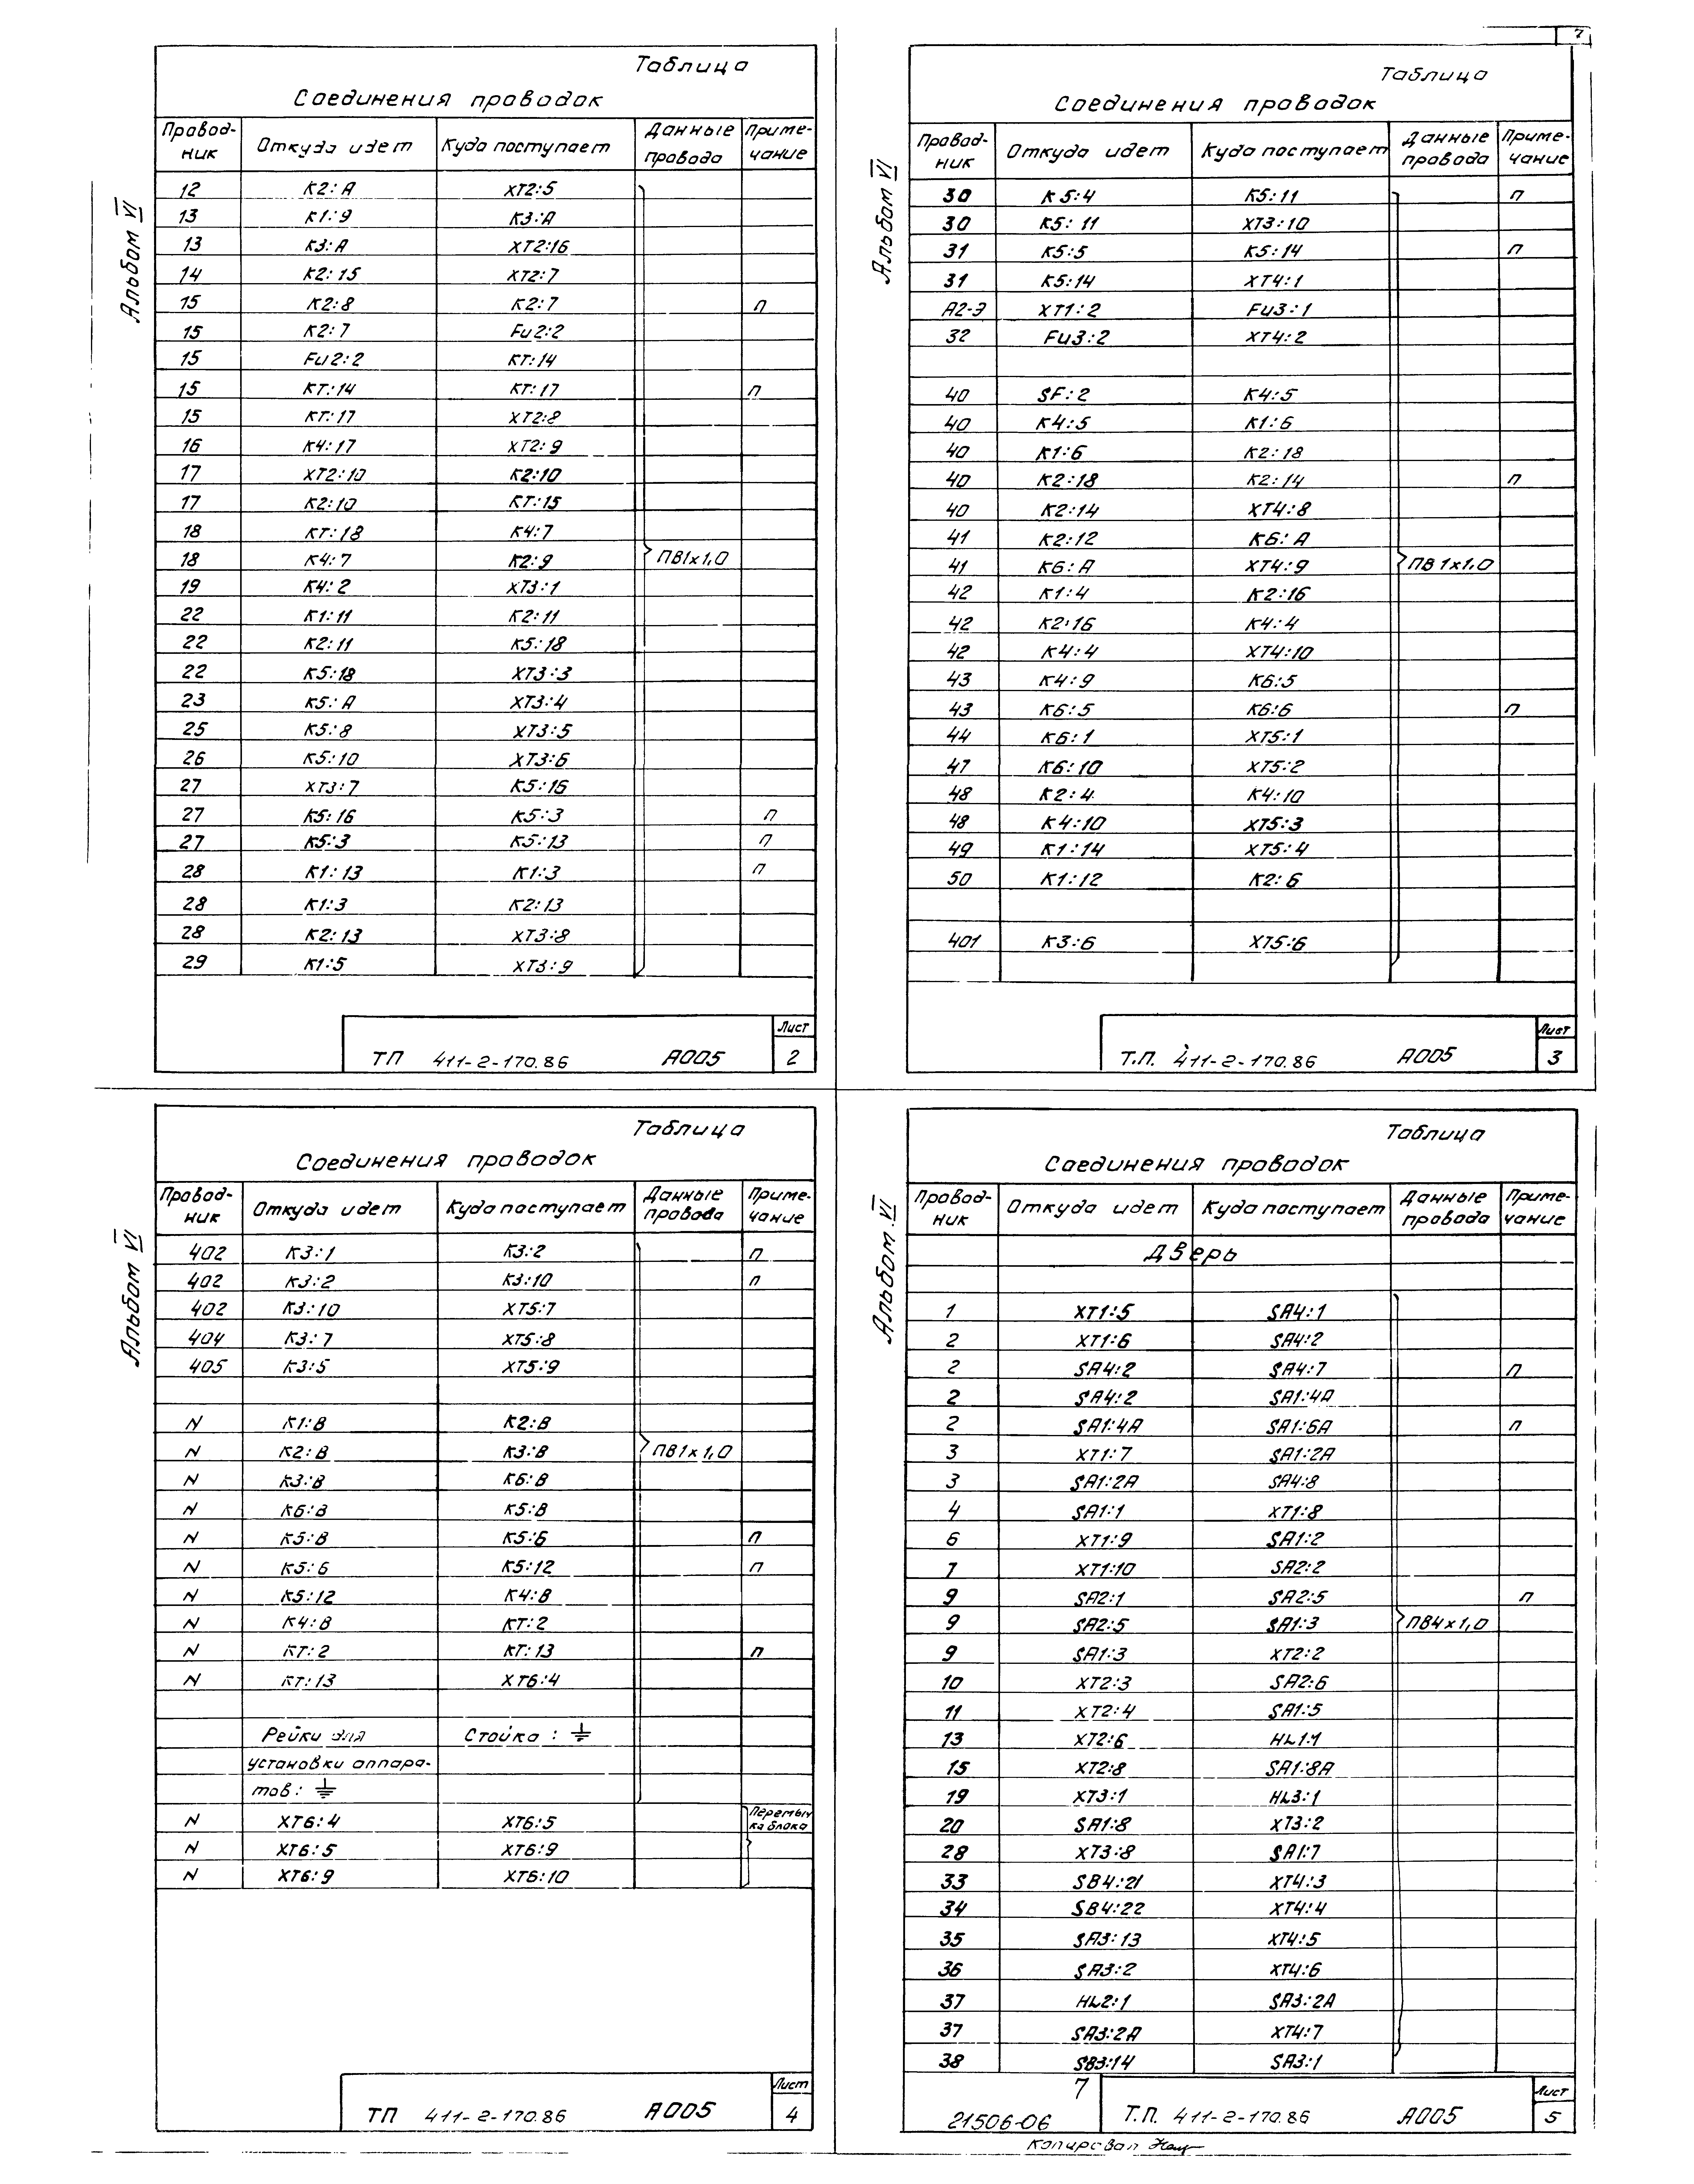 7
Альбом VI
Таблица
Соединения проводок
Провод-ник Откуда идет Куда поступает Данные провода Приме-чание
12 К2:А ХТ2:5
13 К1:9 К3:А
13 К3:А ХТ2:16
14 К2:15 ХТ2:7
15 К2:8 К2:7 п
15 К2:7 Fu2:2
15 Fu2:2 КТ:14
15 КТ:14 КТ:17 п
15 КТ:17 ХТ2:8
16 К4:17 ХТ2:9
17 ХТ2:10 К2:10
17 К2:10 КТ:15
18 КТ:18 К4:7
18 К4:7 К2:9 ПВ1х1,0
19 К4:2 ХТ3:1
22 К1:11 К2:11
22 К2:11 К5:18
22 К5:18 ХТ3:3
23 К5:А ХТ3:4
25 К5:8 ХТ3:5
26 К5:10 ХТ3:6
27 ХТ3:7 К5:16
27 К5:16 К5:3 п
27 К5:3 К5:13 п
28 К1:13 К1:3 п
28 К1:3 К2:13
28 К2:13 ХТ3:8
29 К1:5 ХТ3:9
ТП 411-2-170.86 А005 Лист 2
Альбом VI
Таблица
Соединения проводок
Провод-ник Откуда идет Куда поступает Данные провода Приме-чание
30 К5:4 К5:11 п
30 К5:11 ХТ3:10
31 К5:5 К5:14 п
31 К5:14 ХТ4:1
А2-Э ХТ1:2 Fu3:1
32 Fu3:2 ХТ4:2
40 SF:2 К4:5
40 К4:5 К1:6
40 К1:6 К2:18
40 К2:18 К2:14 п
40 К2:14 ХТ4:8
41 К2:12 К6:А
41 К6:А ХТ4:9 ПВ 1х1,0
42 К1:4 К2:16
42 К2:16 К4:4
42 К4:4 ХТ4:10
43 К4:9 К6:5
43 К6:5 К6:6 п
44 К6:1 ХТ5:1
47 К6:10 ХТ5:2
48 К2:4 К4:10
48 К4:10 ХТ5:3
49 К1:14 ХТ5:4
50 К1:12 К2:6
401 К3:6 ХТ5:6
Т.П. 411-2-170.86 А005 Лист 3
Альбом VI
Таблица
Соединения проводок
Провод-ник Откуда идет Куда поступает Данные провода Приме-чание
402 К3:1 К3:2 п
402 К3:2 К3:10 п
402 К3:10 ХТ5:7
404 К3:7 ХТ5:8
405 К3:5 ХТ5:9
N К1:В К2:В
N К2:В К3:В ПВ1х1,0
N К3:В К6:В
N К6:В К5:В
N К5:В К5:6 п
N К5:6 К5:12 п
N К5:12 К4:В
N К4:В КТ:2
N КТ:2 КТ:13 п
N КТ:13 ХТ6:4
Рейки для Стойка : ⏚
установки аппара-
тов: ⏚
N ХТ6:4 ХТ6:5 Перемычка блока
N ХТ6:5 ХТ6:9
N ХТ6:9 ХТ6:10
ТП 411-2-170.86 А005 Лист 4
Альбом VI
Таблица
Соединения проводок
Провод-ник Откуда идет Куда поступает Данные провода Приме-чание
Дверь
1 ХТ1:5 SА4:1
2 ХТ1:6 SА4:2
2 SА4:2 SА4:7 п
2 SА4:2 SА1:4А
2 SА1:4А SА1:6А п
3 ХТ1:7 SА1:2А
3 SА1:2А SА4:8
4 SА1:1 ХТ1:8
6 ХТ1:9 SА1:2
7 ХТ1:10 SА2:2
9 SА2:1 SА2:5 п
9 SА2:5 SА1:3 ПВ4х1,0
9 SА1:3 ХТ2:2
10 ХТ2:3 SА2:6
11 ХТ2:4 SА1:5
13 ХТ2:6 HL1:1
15 ХТ2:8 SА1:8А
19 ХТ3:1 HL3:1
20 SА1:8 ХТ3:2
28 ХТ3:8 SА1:7
33 SВ4:21 ХТ4:3
34 SВ4:22 ХТ4:4
35 SА3:13 ХТ4:5
36 SА3:2 ХТ4:6
37 HL2:1 SА3:2А
37 SА3:2А ХТ4:7
38 SВ3:14 SА3:1
7
21506-06
Т.П. 411-2-170.86 А005 Лист 5
Копировал